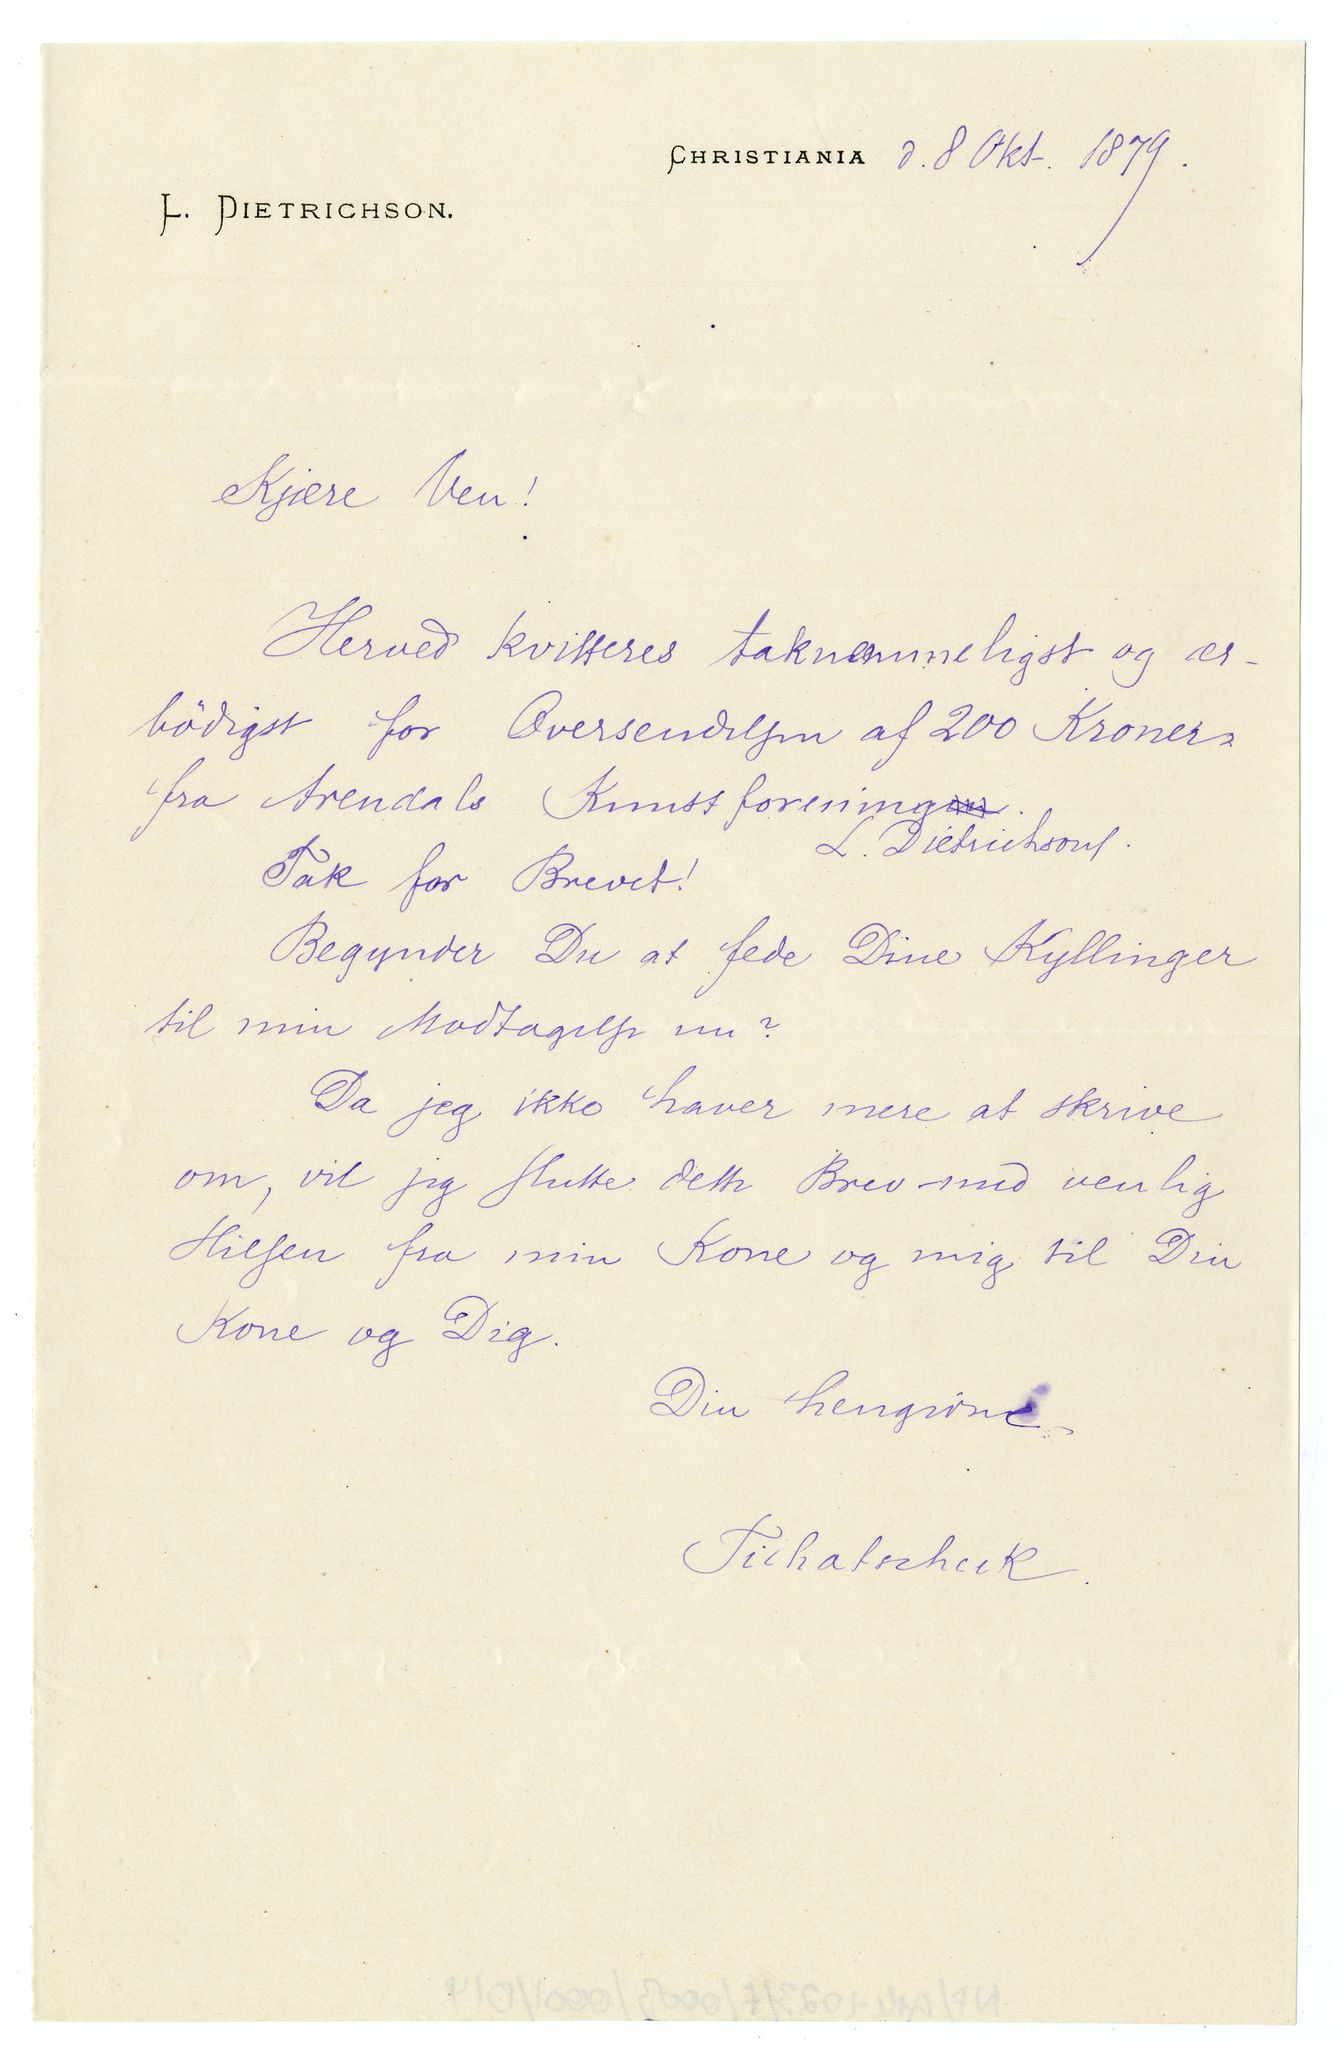 CHRISTIANIA d. 8 Okt. 1879.
L. DIETRICHSON.
Kjære Ven!
Herved kvitteres taknemmeligst og ær-
bödigst for Oversendelsen af 200 Kroner
fra Arendals Kunstforening.
L. Dietrichson.
Tak for Brevet!
Begynder Du at fede Dine Kyllinger
til min Modtagelse nu?
Da jeg ikke haver mere at skrive
om, vil jeg slutte dette Brev med venlig
Hilsen fra min Kone og mig til Din
Kone og Dig.
Din hengivne
Tichatscheck.